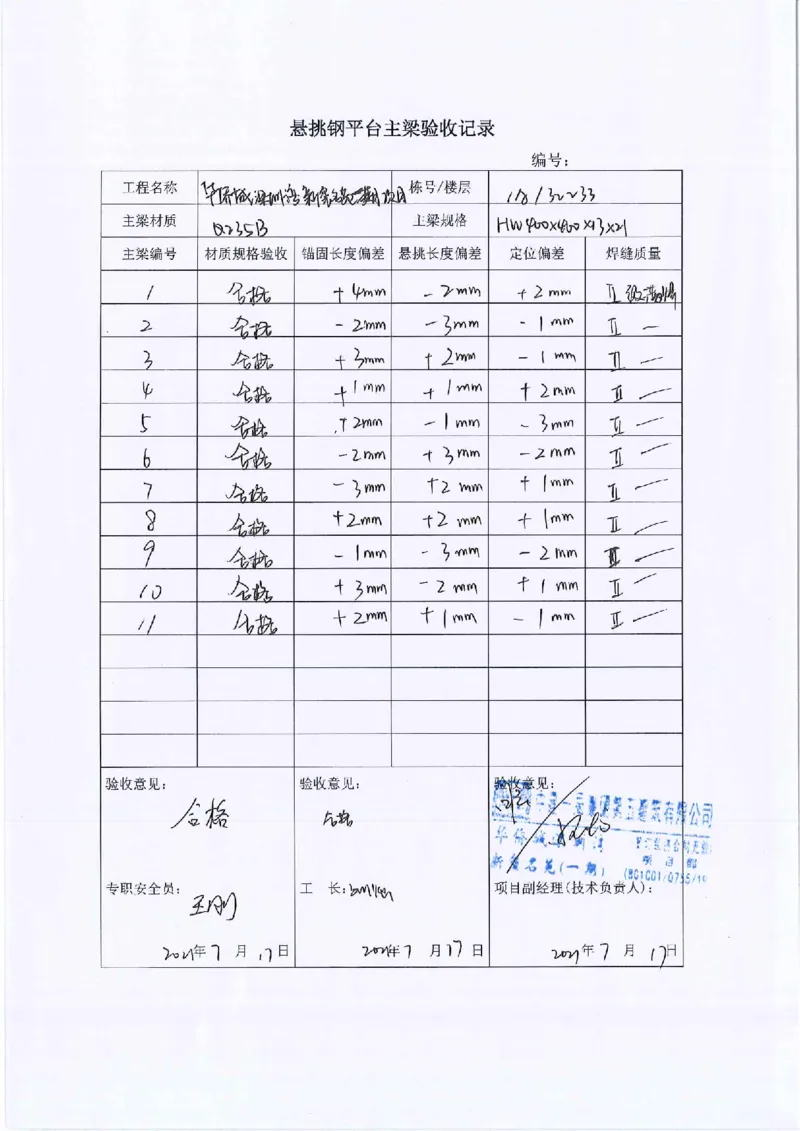 悬挑钢平台主梁验收记录
编号：
工程名称 栋号/楼层
主梁材质 Q235B 主梁规格 HW400x400x13x21
主梁编号 材质规格验收 锚固长度偏差 悬挑长度偏差 定位偏差 焊缝质量
1 合格 +4mm -2mm +2mm II级
2 合格 -2mm -3mm -1mm II —
3 合格 +3mm +2mm -1mm II —
4 合格 +1mm +1mm +2mm II —
5 合格 +2mm -1mm -3mm II —
6 合格 -2mm +3mm -2mm II —
7 合格 -3mm +2mm +1mm II —
8 合格 +2mm +2mm +1mm II —
9 合格 -1mm -3mm -2mm II —
10 合格 +3mm -2mm +1mm II —
11 合格 +2mm +1mm -1mm II —
验收意见： 验收意见： 验收意见：
合格 合格
有限公司
华侨城
新 名苑(一期) 项目部
专职安全员：王刚 工 长： 项目副经理(技术负责人)：
2021年7月17日 2021年7月17日 2021年7月17日